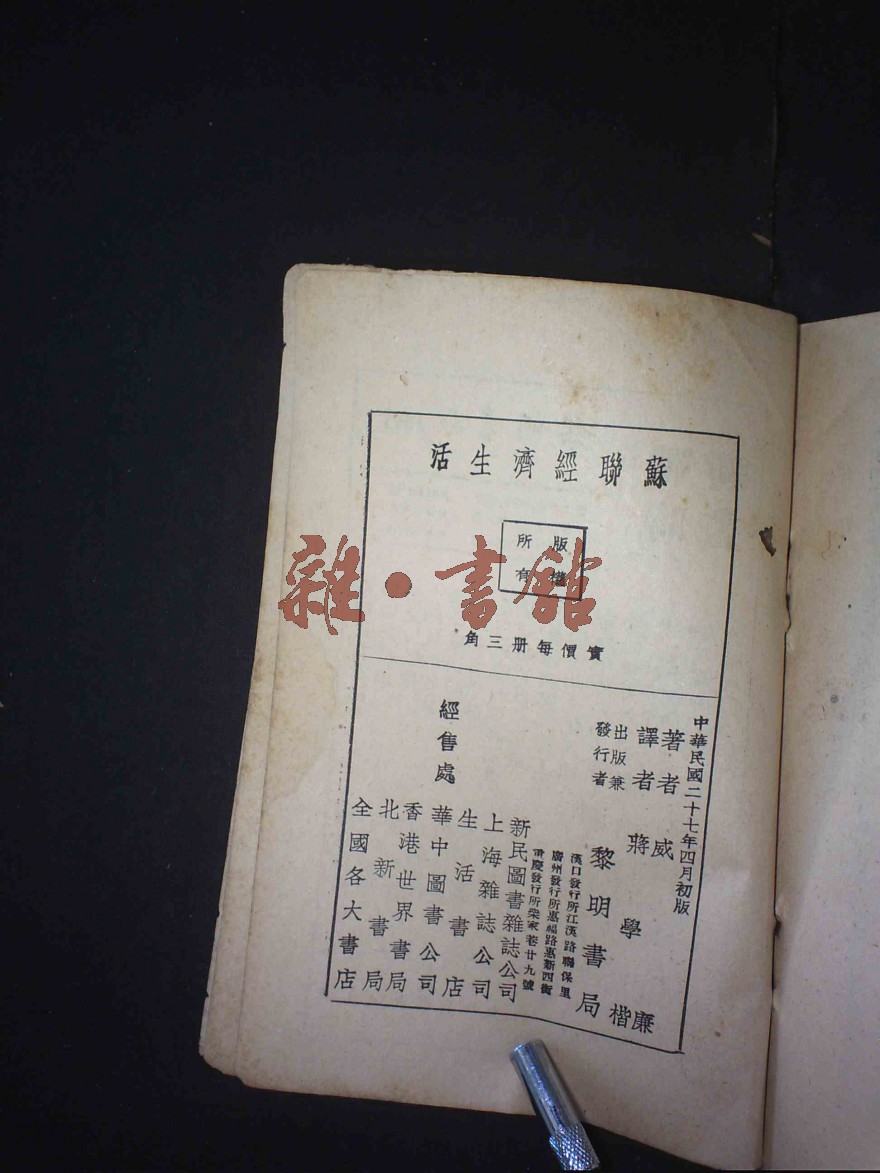 蘇聯經濟生活
版權
所有
實價每册三角
中華民國二十七年四月初版
著者 威廉
譯者 蔣學楷
出版兼
發行者
黎明書局
漢口發行所江漢路聯保里
廣州發行所惠福路惠新四街
重慶發行所柴家巷廿九號
經售處
新民圖書雜誌公司
上海雜誌公司
生活書店
華中圖書公司
香港世界書局
北新書局
全國各大書店
雜·書館